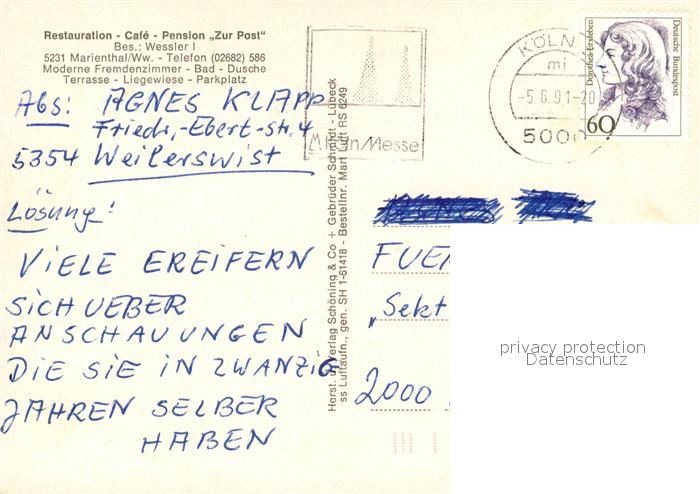 Restauration - Café - Pension „Zur Post"
Bes.: Wessler I
5231 Marienthal/Ww. - Telefon (02682) 586
Moderne Fremdenzimmer - Bad - Dusche
Terrasse - Liegewiese - Parkplatz
Abs: AGNES KLAPP
Friedr.-Ebert-str. 4
5354 Weilerswist
Lösung:
VIELE EREIFERN
SICH UEBER
ANSCHAUUNGEN
DIE SIE IN ZWANZIG
JAHREN SELBER
HABEN
Herst. u. Verlag Schöning & Co + Gebrüder Schmidt - Lübeck
ss Luftaufn., gen. SH 1-61418 - Bestellnr. Mart RS 6249
Köln/Messe
KÖLN
mi
-5.6.91-20
5000
Dorothea Erxleben
Deutsche Bundespost
60
FUE
„Sekt
2000
privacy protection
Datenschutz